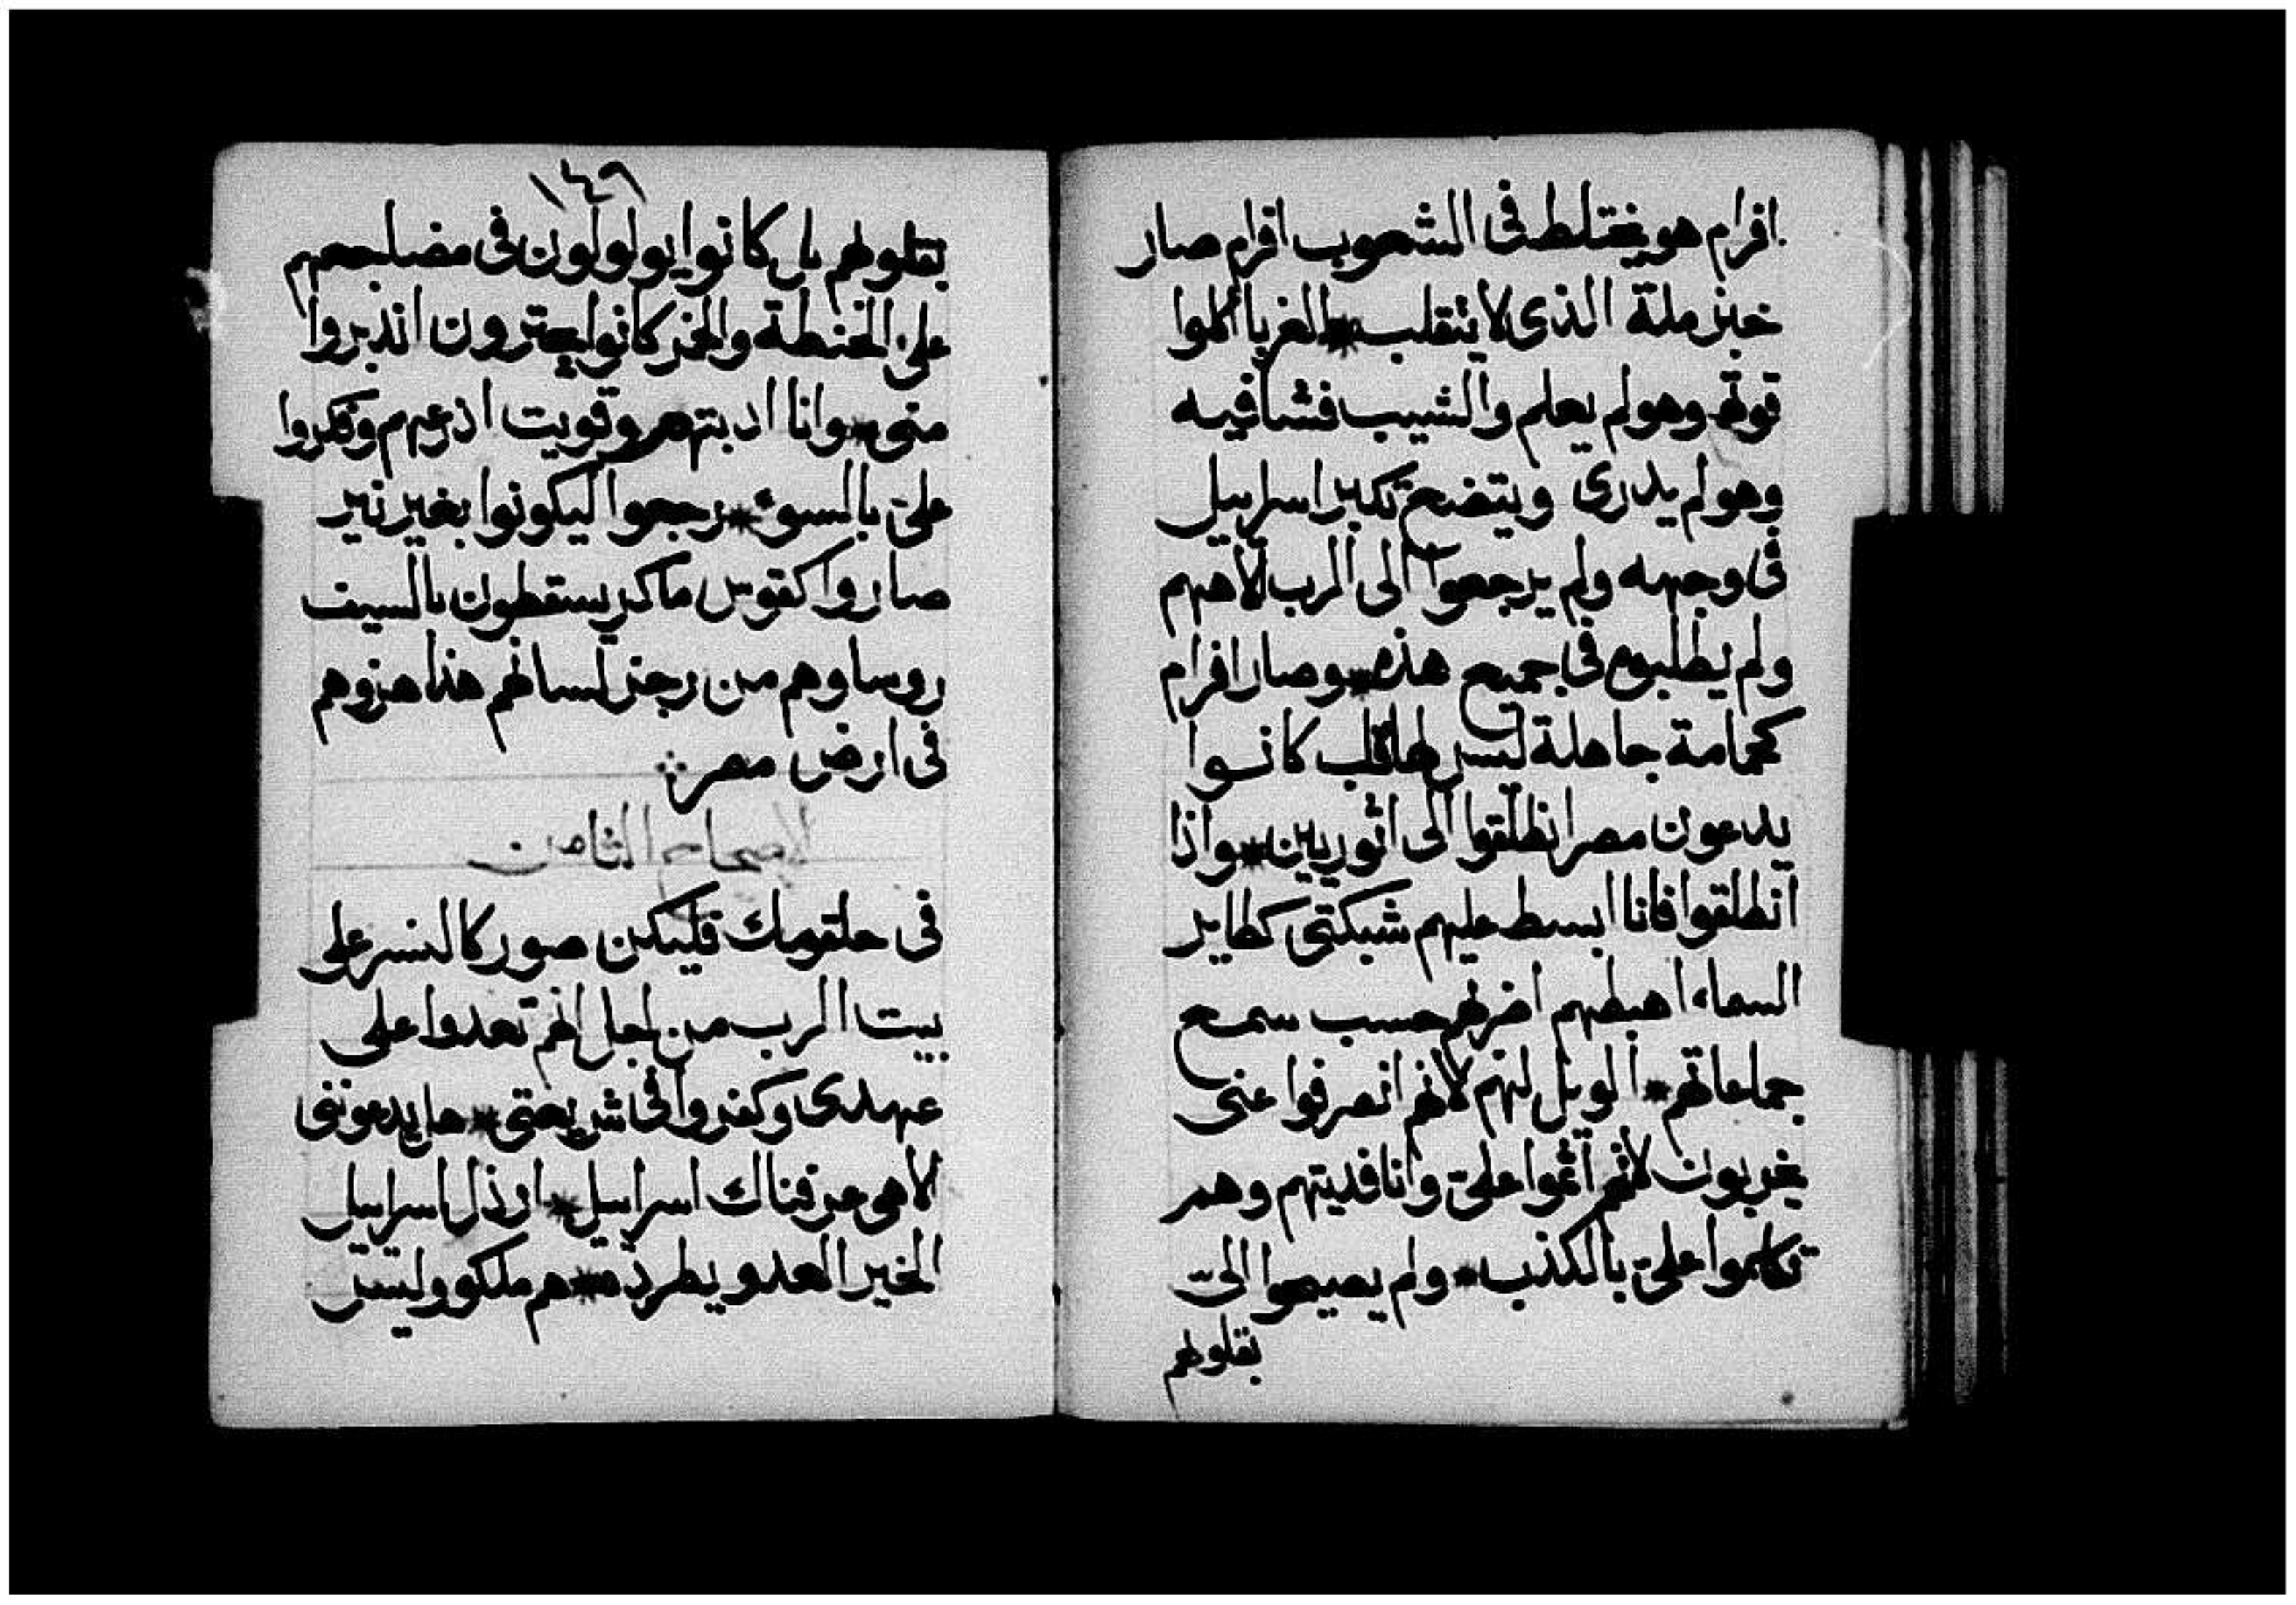 افرام هو يختلط فى الشعوب افرام صار
خبز ملة الذى لا ينقلب * الغربا اكلوا
قوته وهو لم يعلم والشيب فشا فيه
وهو لم يدرى ويتضع تكبر اسراييل
فى وجهه ولم يرجعوا الى الرب الاههم
ولم يطلبوه فى جميع هذه * وصار افرام
كحمامة جاهلة ليس لها قلب كانوا
يدعون مصر انطلقوا الى اثوريين * واذا
انطلقوا فانا ابسط عليهم شبكتى كطاير
السماء اهبطهم اضربهم حسب سمع
جماعاتهم * الويل لهم لانهم انصرفوا عنى
يخربون لانهم اثموا علىّ وانا فديتهم وهم
تكلموا علىّ بالكذب * ولم يصيحوا الىّ
بقلوبهم
١٤٩
بقلوبهم بل كانوا يولولون فى مضاجعهم
على الحنطة والخمر كانوا يجترون اندبروا
منى * وانا ادبتهم وقويت اذرعهم وفكروا
علىّ بالسوء * رجعوا ليكونوا بغير نير
صاروا كقوس ماكر يسقطون بالسيف
روساوهم من رجز لسانهم هذا هزوهم
فى ارض مصر
الاصحاح الثامن
فى حلقومك فليكن صور كالنسر على
بيت الرب من اجل انهم تعدوا على
عهدى وكفروا فى شريعتى * يدعوننى
الاهى عرفناك اسراييل * ارذل اسراييل
الخير العدو يطرده * هم ملكو وليس